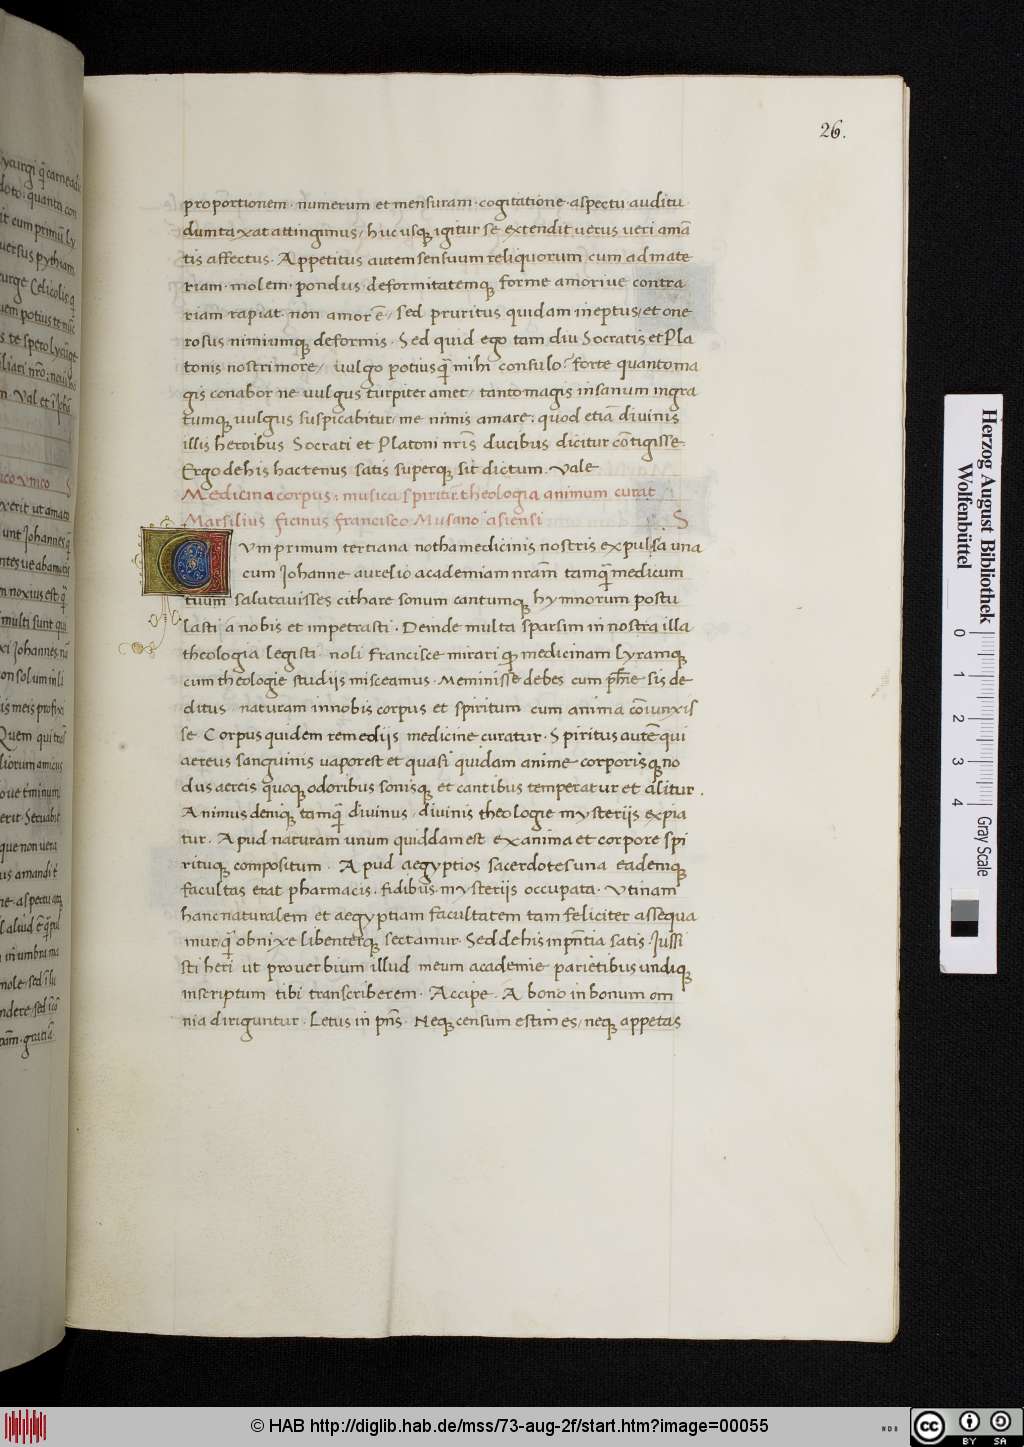 26.
proportionem · numerum et mensuram · cogitatione · aspectu · auditu ·
dumtaxat attingimus / hucusqꝫ igitur se extendit uerus ueri amā
tis affectus · Appetitus autem sensuum reliquorum cum ad mate
riam · molem · pondus · deformitatemqꝫ forme amoriue contra
riam · rapiat · non amor ē / sed pruritus quidam ineptus / et one
rosus nimiumqꝫ deformis · Sed quid ego tam diu Socratis et Pla
tonis nostri more / uulgo potiusq̄ mihi consulo? forte quanto ma
gis conabor ne uulgus turpiter amet / tanto magis insanum ingra
tumqꝫ uulgus suspicabitur / me nimis amare: quod etiā diuinis
illis heroibus Socrati et Platoni nr̄is ducibus dicitur cōtigisse ·
Ergo de his hactenus satis superqꝫ sit dictum · Vale
Medicina corpus: musica spiritū: theologia animum curat
Marsilius ficinus francisco Musano asiensi S
Cum primum tertiana notha medicinis nostris expulsa una
cum Johanne aurelio academiam nr̄am tamq̄ medicum
tuum salutauisses cithare sonum cantumqꝫ hymnorum postu
lasti a nobis et impetrasti · Deinde multa sparsim in nostra illa
theologia legisti · noli francisce mirari qꝫ medicinam lyramqꝫ
cum theologie studiis misceamus · Meminisse debes cum ph̄ie sis de
ditus · naturam in nobis corpus et spiritum cum anima cōiunxis
se Corpus quidem remediis medicine curatur · Spiritus autē qui
aereus sanguinis uapor est et quasi quidam anime corporisqꝫ no
dus aereis quoqꝫ odoribus sonisqꝫ et cantibus temperatur et alitur .
Animus deniqꝫ tamq̄ diuinus / diuinis theologie mysteriis expia
tur · Apud naturam unum quiddam est ex anima et corpore spi
rituqꝫ compositum · Apud aegyptios sacerdotes una eademqꝫ
facultas erat pharmacis · fidibus · mysteriis occupata · Vtinam
hanc naturalem et aegyptiam facultatem tam feliciter assequa
mur / q̄ obnixe libenterqꝫ sectamur · Sed de his inpn̄tia satis · Jussi
sti heri ut prouerbium illud meum academie parietibus undiqꝫ
inscriptum tibi transcriberem · Accipe · A bono in bonum om
nia diriguntur · Letus in pn̄s · Neqꝫ censum estimes / neqꝫ appetas
Herzog August Bibliothek
Wolfenbüttel
0 1 2 3 4
Gray Scale
© HAB http://diglib.hab.de/mss/73-aug-2f/start.htm?image=00055
WDB
cc BY SA